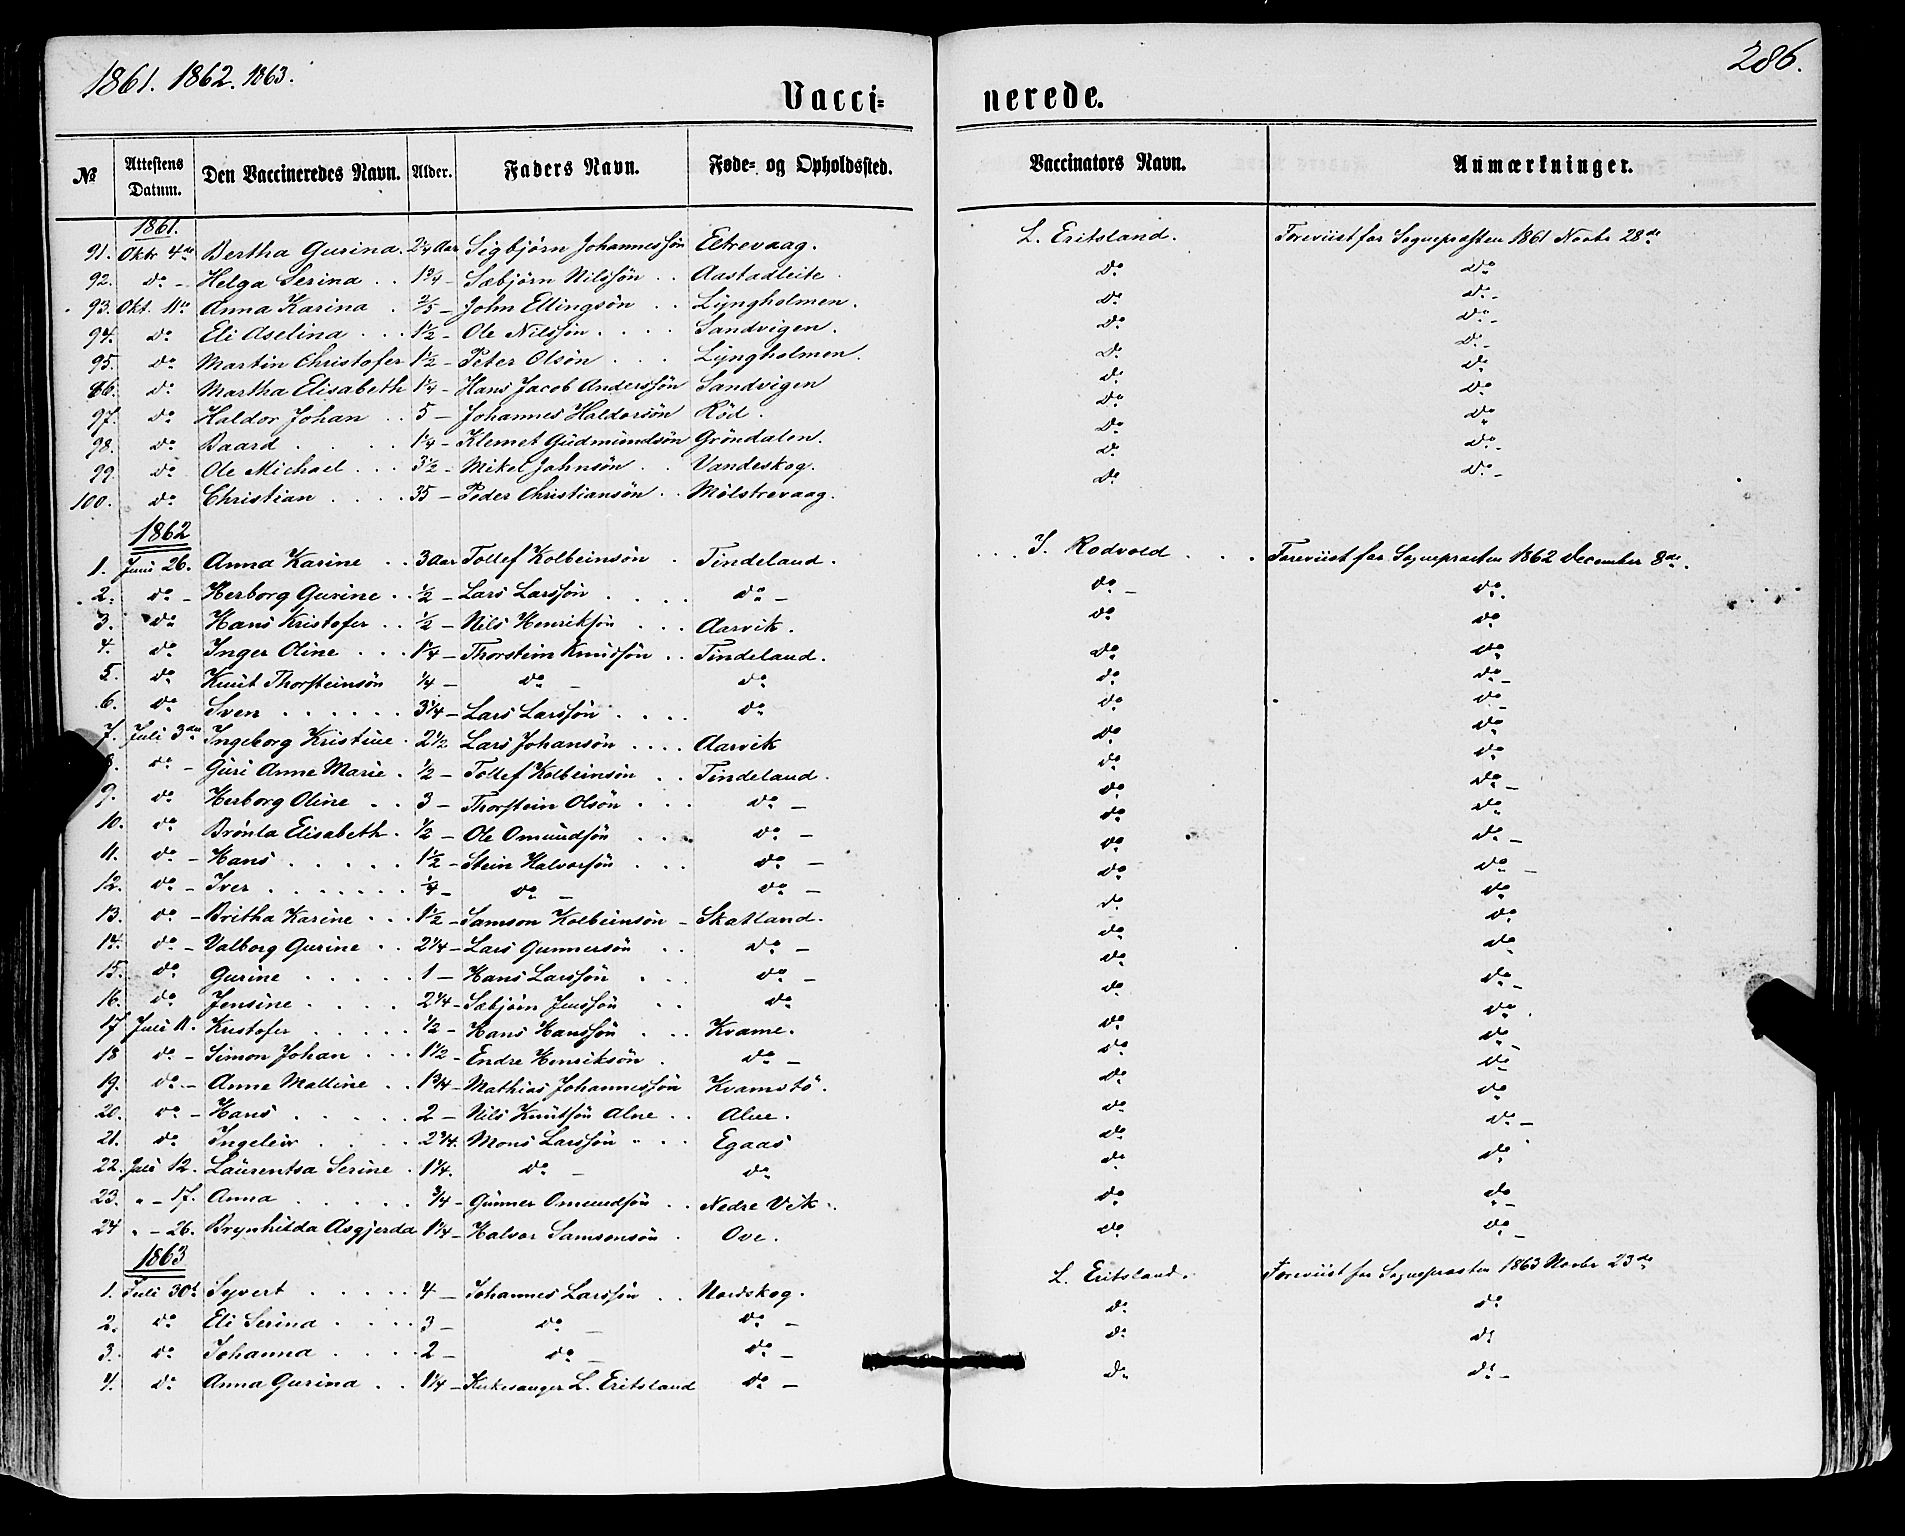 1861. 1862. 1863.
286.
Vacci= nerede.
№ | Attestens Datum. | Den Vaccineredes Navn. | Alder. | Faders Navn. | Føde- og Opholdssted. | Vaccinators Navn. | Anmærkninger.
1861.
91. Oktr 4de Bertha Gurina. 2 3/4 Aar Sigbjörn Johannessön Eltrevaag. L. Eritsland. Foreviist for Sognepræsten 1861 Novbr 28de
92. do - Helga Serina . . 1 3/4 - Sæbjörn Nilssön . . Aastadleite . do do
93. Okt. 11te Anna Karina . 2/5 - John Ellingsön . . Lÿngholmen . do do -
94. do Eli Aselina . . 1 1/2 - Ole Nilssön . . . . Sandvigen . do do -
95. do Martin Christofer 1 1/2 - Peter Olsön . . . Lÿngholmen . do do -
96. do Martha Elisabeth 1 1/4 - Hans Jacob Anderssön Sandvigen do do
97. do Haldor Johan . . 5 - Johannes Haldorsön Röd . do do
98. do Baard . . . . . 1 1/4 - Klemet Gudmundsön Gröndalen. do do
99. do Ole Michael . . . 3 1/2 - Mikel Johnsön . . Vandeskog. do do -
100. do Christian . . . . 35 - Peder Christiansön . . Mölstrevaag. do do -
1862
1. Juni 26. Anna Karine . . 3 Aar Tollef Kolbeinsön . Tindeland. . . . J. Rodvold . . . Foreviist for Sognepræsten 1862 December 8de.
2. do - Herborg Gurine . . 1/2 - Lars Larssön . . . . do - do - do.
3. do Hans Kristofer . . 1/2 - Nils Henriksön . . . Aarvik. do do
4. do Inger Oline . . . 1 1/4 - Thorstein Knudsön . . Tindeland. do do
5. do Knut Thorsteinsön 1/4 - do - do do do -
6. do Sven . . . . . . 3 1/4 - Lars Larssön . . . . do do do
7. Juli 3die Ingeborg Kristine . 2 1/2 Lars Johansön . . . . Aarvik do do
8. do - Guri Anne Marie . 1/2 - Tollef Kolbeinsön . . Tindeland. do do
9. do Herborg Oline . . 3 - Thorstein Olsön . . . do - do do -
10. do Brönla Elisabeth . 1/2 - Ole Omundsön . . . do - do do
11. do - Hans . . . . . 1 1/2 - Stein Halvorsön . . . do - do do -
12. do - Iver . . . . . . . 1/4 - do - do - do do -
13. do - Britha Karine . . . 1 1/2 - Samson Kolbeinsön - Skatland. do do
14. do - Valborg Gurine . . 2 1/4 - Lars Gunnersön . . do - do do
15. do Gurine . . . . . 1 - Hans Larssön . . . do - do do
16. do Jensine . . . . 2 1/4 - Sæbjörn Jenssön . . do do do -
17 Juli 11. Kristofer . . . . . 1/2 - Hans Hanssön . . . Kvame. do do
18 do - Simon Johan . . . 1 1/2 - Endre Henriksön . do - do do -
19. do - Anne Malline . . 1 3/4 - Mathias Johannessön Kvamstö. do do
20. do - Hans . . . . . 2 - Nils Knutsön Alne . . Alne. do do
21. do Ingeleiv . . . . 2 3/4. Mons Larssön . . . Egaas do do -
22. Juli 12. Laurentsa Serine . 1 1/4. do - do do do
23. " - 17. Anna . . . . . 3/4 - Gunner Omundsön . . Nedre Vik . do do -
24 " - 26. Brynhilda Asgjerda 1 1/4 - Halvor Samsonsön . Ove. do do -
1863
1. Juli 30te Syvert . . . . . 4 - Johannes Larssön . . Nordskog. L. Eritsland. Foreviist for Sognepræsten 1863 Novbr 23de
2. do Eli Serina . . . . 3 - do - do - do do
3. do Johanna . . . . 2 - do - do - do do
4. do Anna Gurina . . 1 1/4 - Kirkesanger L. Eritsland do - do do -